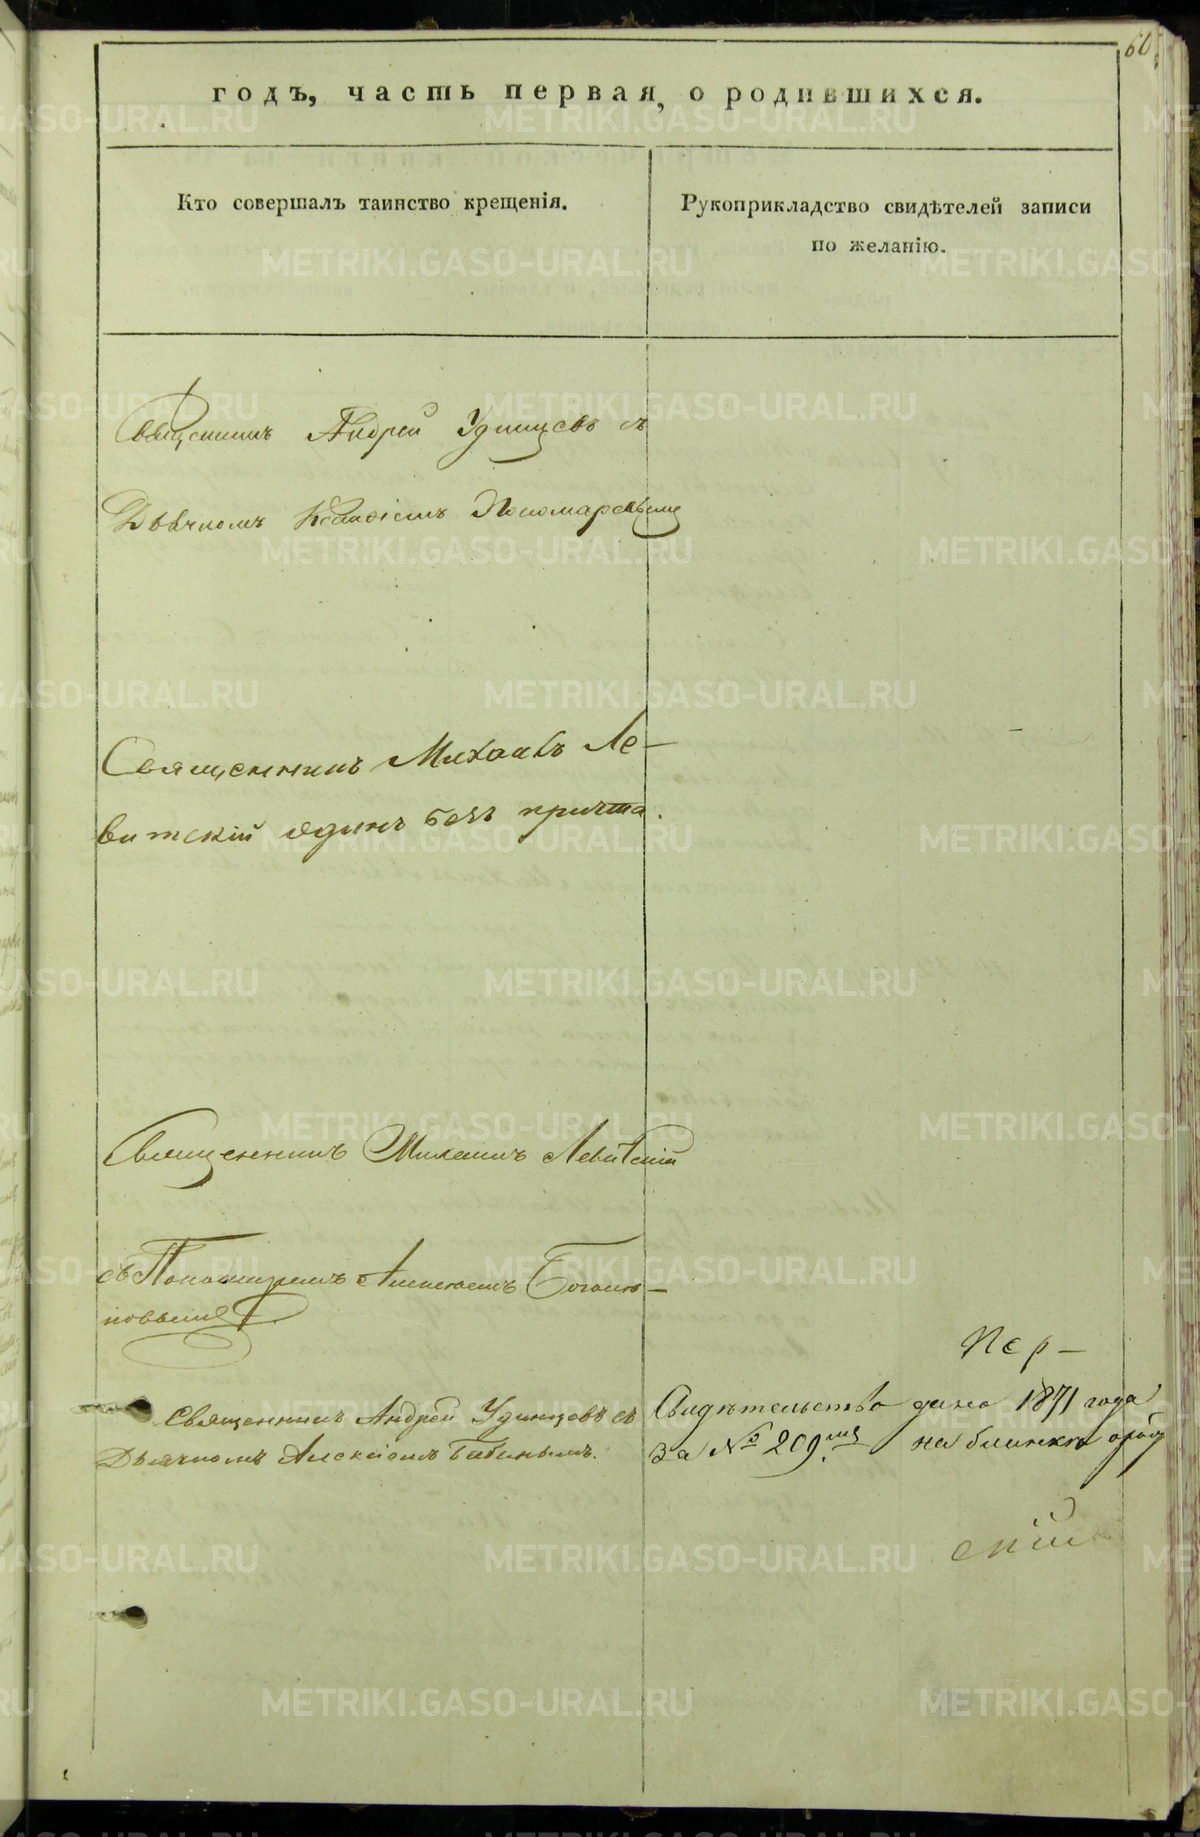 60
годъ, часть первая, о родившихся.
Кто совершалъ таинство крещенія.
Рукоприкладство свидѣтелей записи
по желанію.
Священникъ Андрей Удинцевъ съ
Дьячкомъ Пономаревымъ
Священникъ Михаилъ Ле-
витскій одинъ безъ причта.
Священникъ Михаилъ Левитскій
съ Пономаремъ Алексѣемъ
Священникъ Андрей Удинцевъ съ
Дьячкомъ Алексѣемъ Бабинымъ.
Пер-
Свидѣтельство дано 1871 года
за № 209.мъ на бланкѣ
скій
METRIKI.GASO-URAL.RU